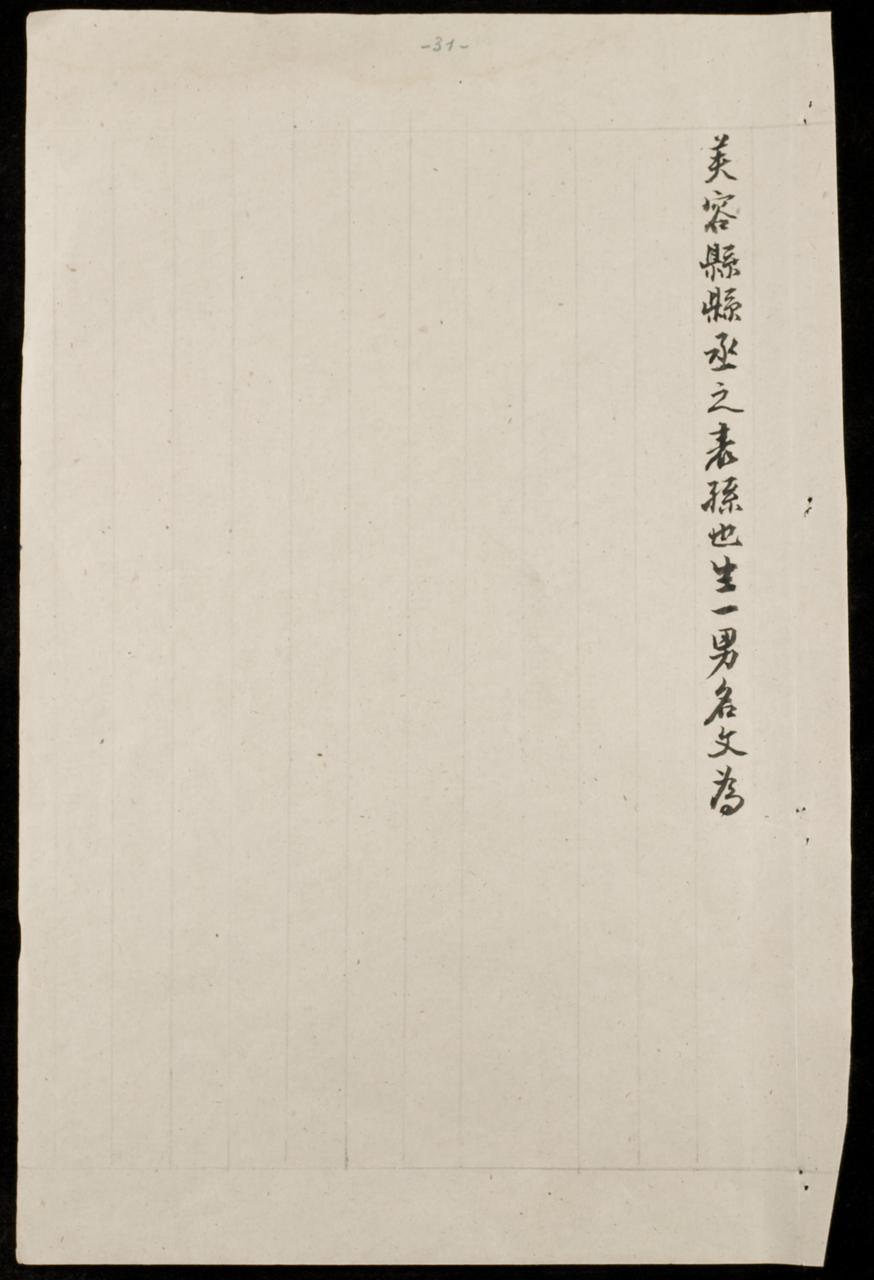 -31-
芙容縣縣丞之表孫也生一男名文為